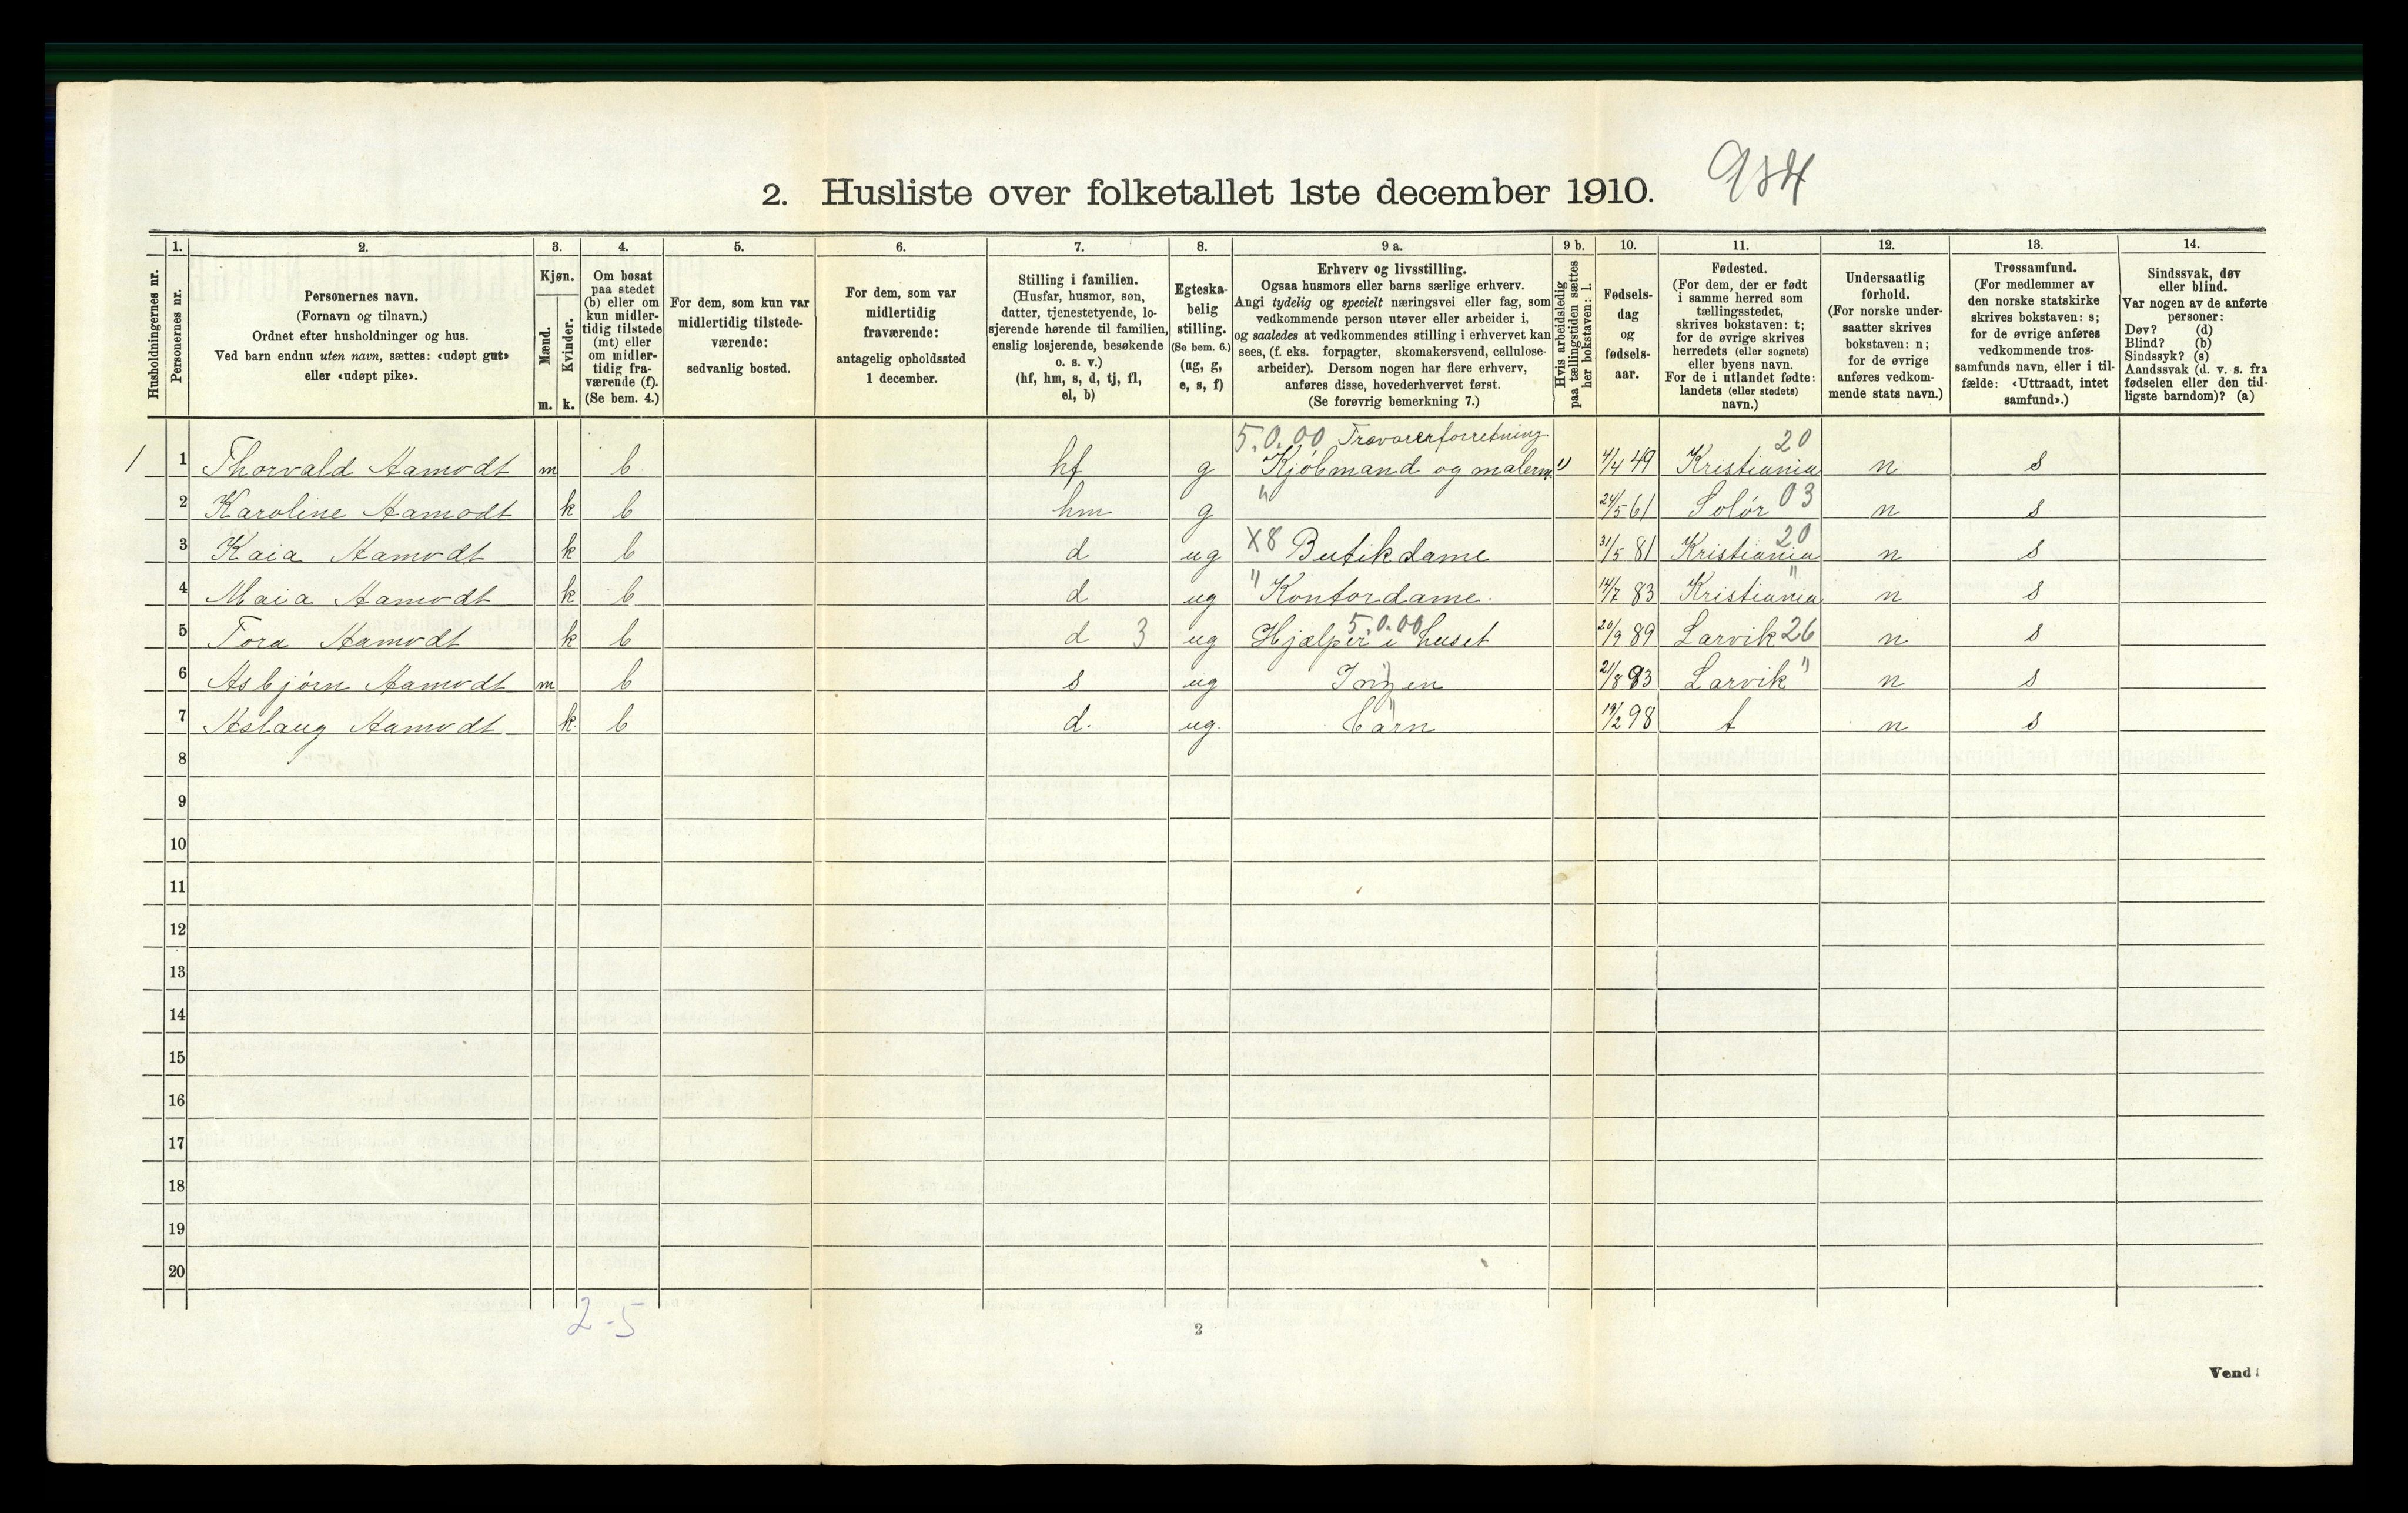 2. Husliste over folketallet 1ste december 1910. 984
Husholdningernes nr.
1. Personernes nr.
2. Personernes navn.
(Fornavn og tilnavn.)
Ordnet efter husholdninger og hus.
Ved barn endnu uten navn, sættes: «udøpt gut»
eller «udøpt pike».
3. Kjøn.
Mænd. Kvinder.
m. k.
4. Om bosat
paa stedet
(b) eller om
kun midler-
tidig tilstede
(mt) eller
om midler-
tidig fra-
værende (f).
(Se bem. 4.)
5. For dem, som kun var
midlertidig tilstede-
værende:
sedvanlig bosted.
6. For dem, som var
midlertidig
fraværende:
antagelig opholdssted
1 december.
7. Stilling i familien.
(Husfar, husmor, søn,
datter, tjenestetyende, lo-
sjerende hørende til familien,
enslig losjerende, besøkende
o. s. v.)
(hf, hm, s, d, tj, fl,
el, b)
8. Egteska-
belig
stilling.
(Se bem. 6.)
(ug, g,
e, s, f)
9 a. Erhverv og livsstilling.
Ogsaa husmors eller barns særlige erhverv.
Angi tydelig og specielt næringsvei eller fag, som
vedkommende person utøver eller arbeider i,
og saaledes at vedkommendes stilling i erhvervet kan
sees, (f. eks. forpagter, skomakersvend, cellulose-
arbeider). Dersom nogen har flere erhverv,
anføres disse, hovederhvervet først.
(Se forøvrig bemerkning 7.)
9 b. Hvis arbeidsledig
paa tællingstiden sættes
her bokstaven: l.
10. Fødsels-
dag
og
fødsels-
aar.
11. Fødested.
(For dem, der er født
i samme herred som
tællingsstedet,
skrives bokstaven: t;
for de øvrige skrives
herredets (eller sognets)
eller byens navn.
For de i utlandet fødte:
landets (eller stedets)
navn.)
12. Undersaatlig
forhold.
(For norske under-
saatter skrives
bokstaven: n;
for de øvrige
anføres vedkom-
mende stats navn.)
13. Trossamfund.
(For medlemmer av
den norske statskirke
skrives bokstaven: s;
for de øvrige anføres
vedkommende tros-
samfunds navn, eller i til-
fælde: «Uttraadt, intet
samfund».)
14. Sindssvak, døv
eller blind.
Var nogen av de anførte
personer:
Døv? (d)
Blind? (b)
Sindssyk? (s)
Aandssvak (d. v. s. fra
fødselen eller den tid-
ligste barndom)? (a)
5.0.00 Trævareforretning 20
1 1 Thorvald Aamodt m b hf g Kjøbmand og malerm. 4/4 49 Kristiania n s
2 Karoline Aamodt k b hm g " 24/5 61 Solør 03 n s
3 Kaia Aamodt k b d ug X8 Butikdame 31/5 81 Kristiania 20 n s
4 Maia Aamodt k b d ug " Kontordame. 14/7 83 Kristiania " n s
5 Tora Aamodt k b d 3 ug Hjælper i huset 5.0.00 20/9 89 Larvik 26 n s
6 Asbjørn Aamodt m b s ug Ingen 21/8 93 Larvik " n s
7 Aslaug Aamodt k. b d. ug. barn 19/2 98 t n s
8
9
10
11
12
13
14
15
16
17
18
19
20
2-5
3
Vend!